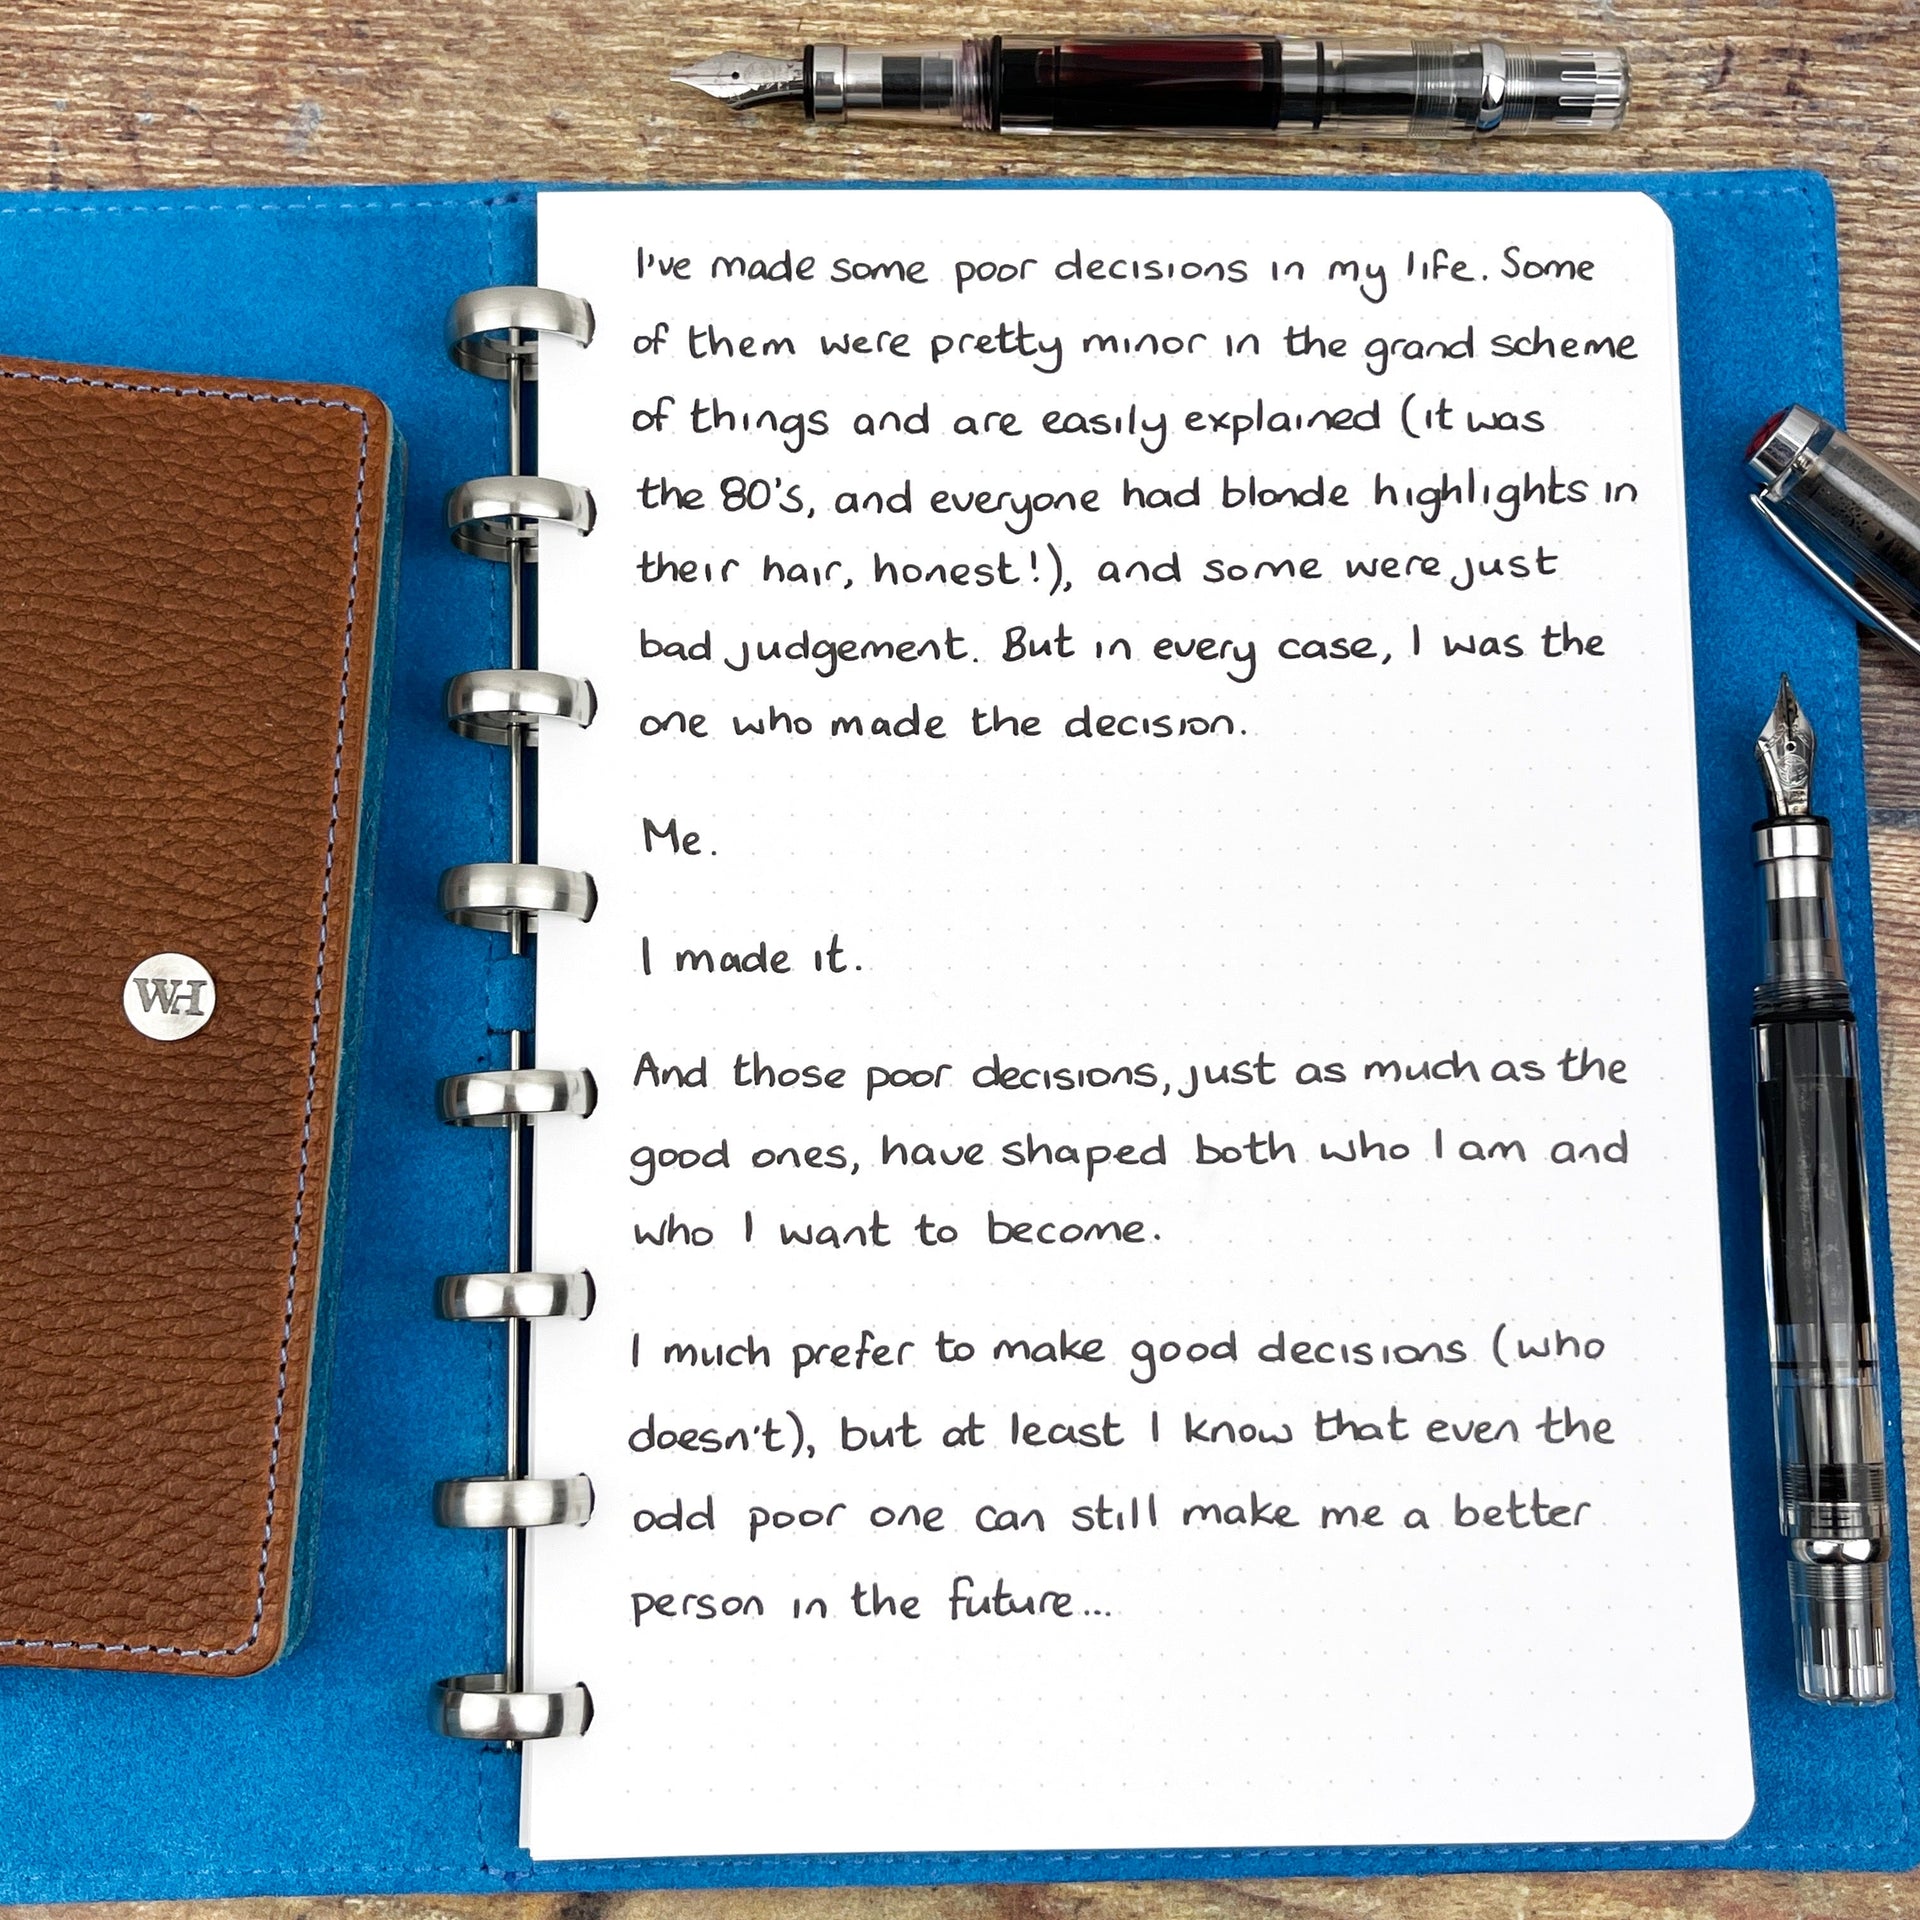 I've made some poor decisions in my life. Some
of them were pretty minor in the grand scheme
of things and are easily explained (it was
the 80's, and everyone had blonde highlights in
their hair, honest!), and some were just
bad judgement. But in every case, I was the
one who made the decision.
Me.
I made it.
And those poor decisions, just as much as the
good ones, have shaped both who I am and
who I want to become.
I much prefer to make good decisions (who
doesn't), but at least I know that even the
odd poor one can still make me a better
person in the future...
WH